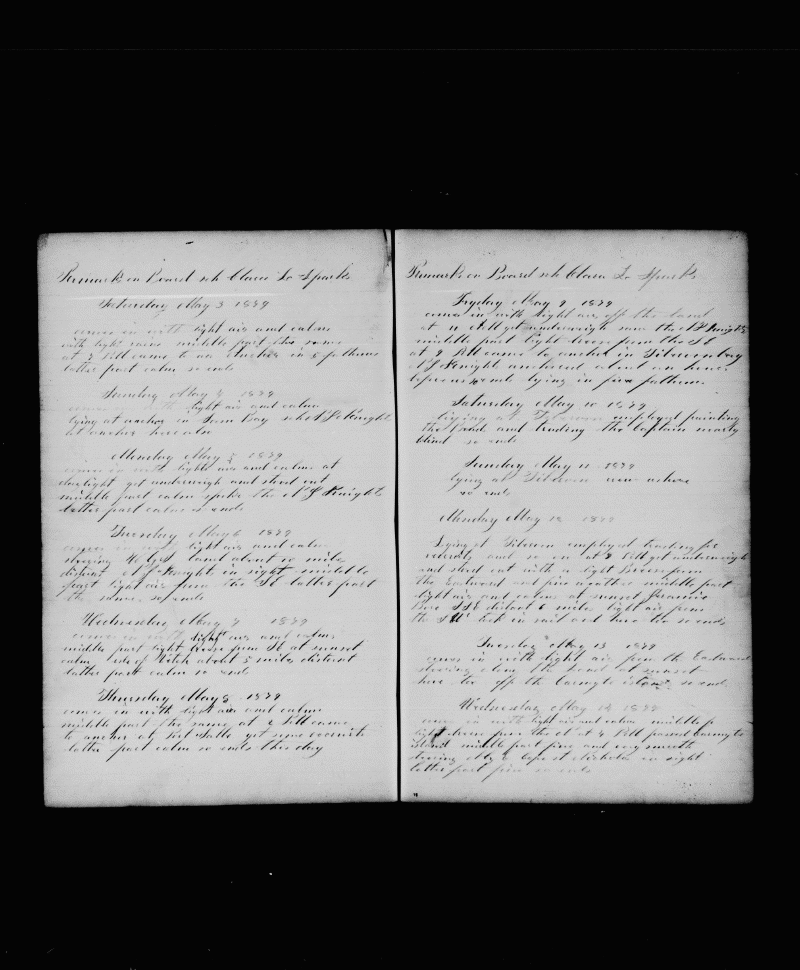 Remarks on Board sch Clara L Sparks
Saturday May 3 1879
comes in with light airs and calms
with light rains middle part the same
at 4 PM came to an anchor in 5 fathoms
latter part calm so ends
Sunday May 4 1879
comes in with light air and calms
lying at anchor in Bay sch A J Knight
at anchor here also
Monday May 5 1879
comes in with light airs and calms at
daylight got underweigh and stood out
middle part calm spoke the A J Knight
latter part calm so ends
Tuesday May 6 1879
comes in with light airs and calms
steering land about 10 miles
distant A J Knight in sight middle
part light air from the latter part
the same so ends
Wednesday May 7 1879
comes in with light airs and calms
middle part light breeze from at sunset
calm isle of about 5 miles distant
latter part calm so ends
Thursday May 8 1879
comes in with light airs and calms
middle part the same at 2 PM came
to anchor at got some
latter part calm so ends this day
Remarks on Board sch Clara L Sparks
Fryday May 9 1879
comes in with light airs off the land
at 11 AM got underweigh saw the A J Knight
middle part light breeze from the
at 4 PM came to anchor in bay
A J Knight anchored about an hour
before us ends lying in five fathoms
Saturday May 10 1879
lying at employed painting
the and trading the Captain nearly
blind so ends
Sunday May 11 1879
lying at ashore
so ends
Monday May 12 1879
Lying at employed trading for
and so on at 4 PM got underweigh
and stood out with a light Breeze from
the Eastward and fine weather middle part
light air and calms at sunset
Bore distant 6 miles light air from
the took in sail and hove too so ends
Tuesday May 13 1879
comes in with light airs from the Eastward
steering along the land at sunset
hove too off the island so ends
Wednesday May 14 1879
comes in with light air and calms middle p
light breeze from the at 4 PM passed
island middle part fine and very smooth
steering cape st Nicholas in sight
latter part fine so ends